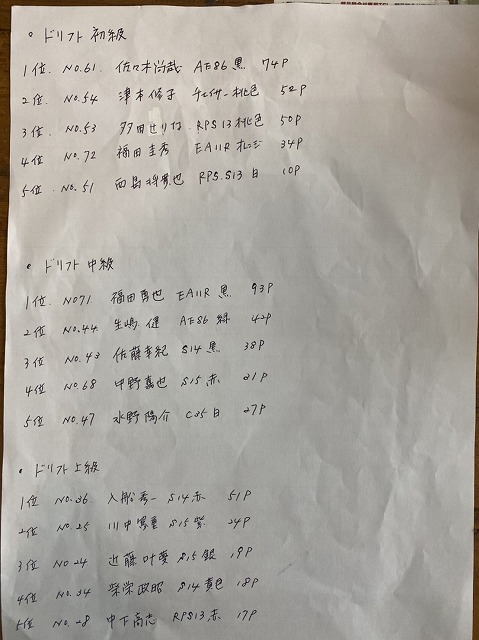 • ドリフト 初級
1位 NO.61 佐々木尚哉 AE86 黒 74P
2位 NO.54 津本 修子 チェイサー 桃色 52P
3位 NO.53 多田せりな RPS13 桃色 50P
4位 NO.72 福田圭秀 EA11R オレンジ 34P
5位 NO.51 也 RPS.S13 白 10P
• ドリフト 中級
1位 NO71 福田勇也 EA11R 黒 93P
2位 NO.44 生嶋 健 AE86 緑 42P
3位 NO.43 佐藤幸紀 S14 黒 38P
4位 NO.68 中野嘉也 S15 赤 31P
5位 NO.47 水野陽介 C35 白 27P
• ドリフト上級
1位 NO.36 入船秀一 S14 赤 51P
2位 NO.25 川中 S15 紫 24P
3位 NO 24 近藤叶夢 S15 銀 19P
4位 NO.34 政昭 S14 黄色 18P
5位 NO.28 中下高志 RPS13 赤 17P